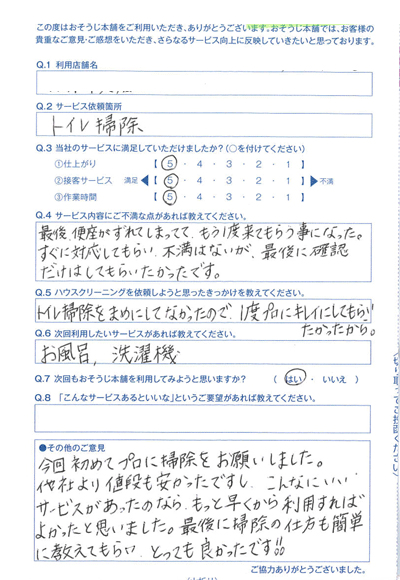 この度はおそうじ本舗をご利用いただき、ありがとうございます。おそうじ本舗では、お客様の
貴重なご意見・ご感想をいただき、さらなるサービス向上に反映していきたいと思っております。
Q.1 利用店舗名
Q.2 サービス依頼箇所
トイレ掃除
Q.3 当社のサービスに満足していただけましたか?(○を付けてください)
①仕上がり 【 5 ・ 4 ・ 3 ・ 2 ・ 1 】
②接客サービス 満足 ◀【 5 ・ 4 ・ 3 ・ 2 ・ 1 】▶ 不満
③作業時間 【 5 ・ 4 ・ 3 ・ 2 ・ 1 】
Q.4 サービス内容にご不満な点があれば教えてください。
最後、便座がずれてしまってて、もう1度来てもらう事になった。
すぐに対応してもらい、不満はないが、最後に確認
だけはしてもらいたかったです。
Q.5 ハウスクリーニングを依頼しようと思ったきっかけを教えてください。
トイレ掃除をまめにしてなかったので、1度プロにキレイにしてもらい
たかったから。
Q.6 次回利用したいサービスがあれば教えてください。
お風呂、洗濯機
Q.7 次回もおそうじ本舗を利用してみようと思いますか? ( はい ・ いいえ )
Q.8 「こんなサービスあるといいな」というご要望があれば教えてください。
●その他のご意見
今回初めてプロに掃除をお願いしました。
他社より値段も安かったですし、こんなにいい
サービスがあったのなら、もっと早くから利用すれば
よかったと思いました。最後に掃除の仕方も簡単
に教えてもらい、とっても良かったです!!
ご協力ありがとうございました。